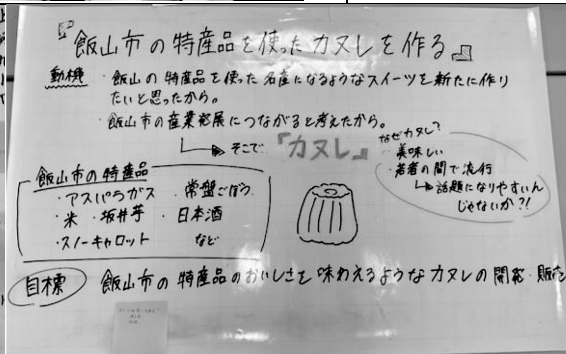 『飯山市の特産品を使ったカヌレを作る』
動機 ・飯山の特産品を使った名産になるようなスイーツを新たに作り
たいと思ったから。
・飯山市の産業発展につながると考えたから。
そこで『カヌレ』
なぜカヌレ?
・美味しい
・若者の間で流行
話題になりやすいん
じゃないか?!
飯山市の特産品
・アスパラガス ・常盤ごぼう
・米 ・坂井芋 ・日本酒
・スノーキャロット など
目標 飯山市の特産品のおいしさを味わえるようなカヌレの開発・販売